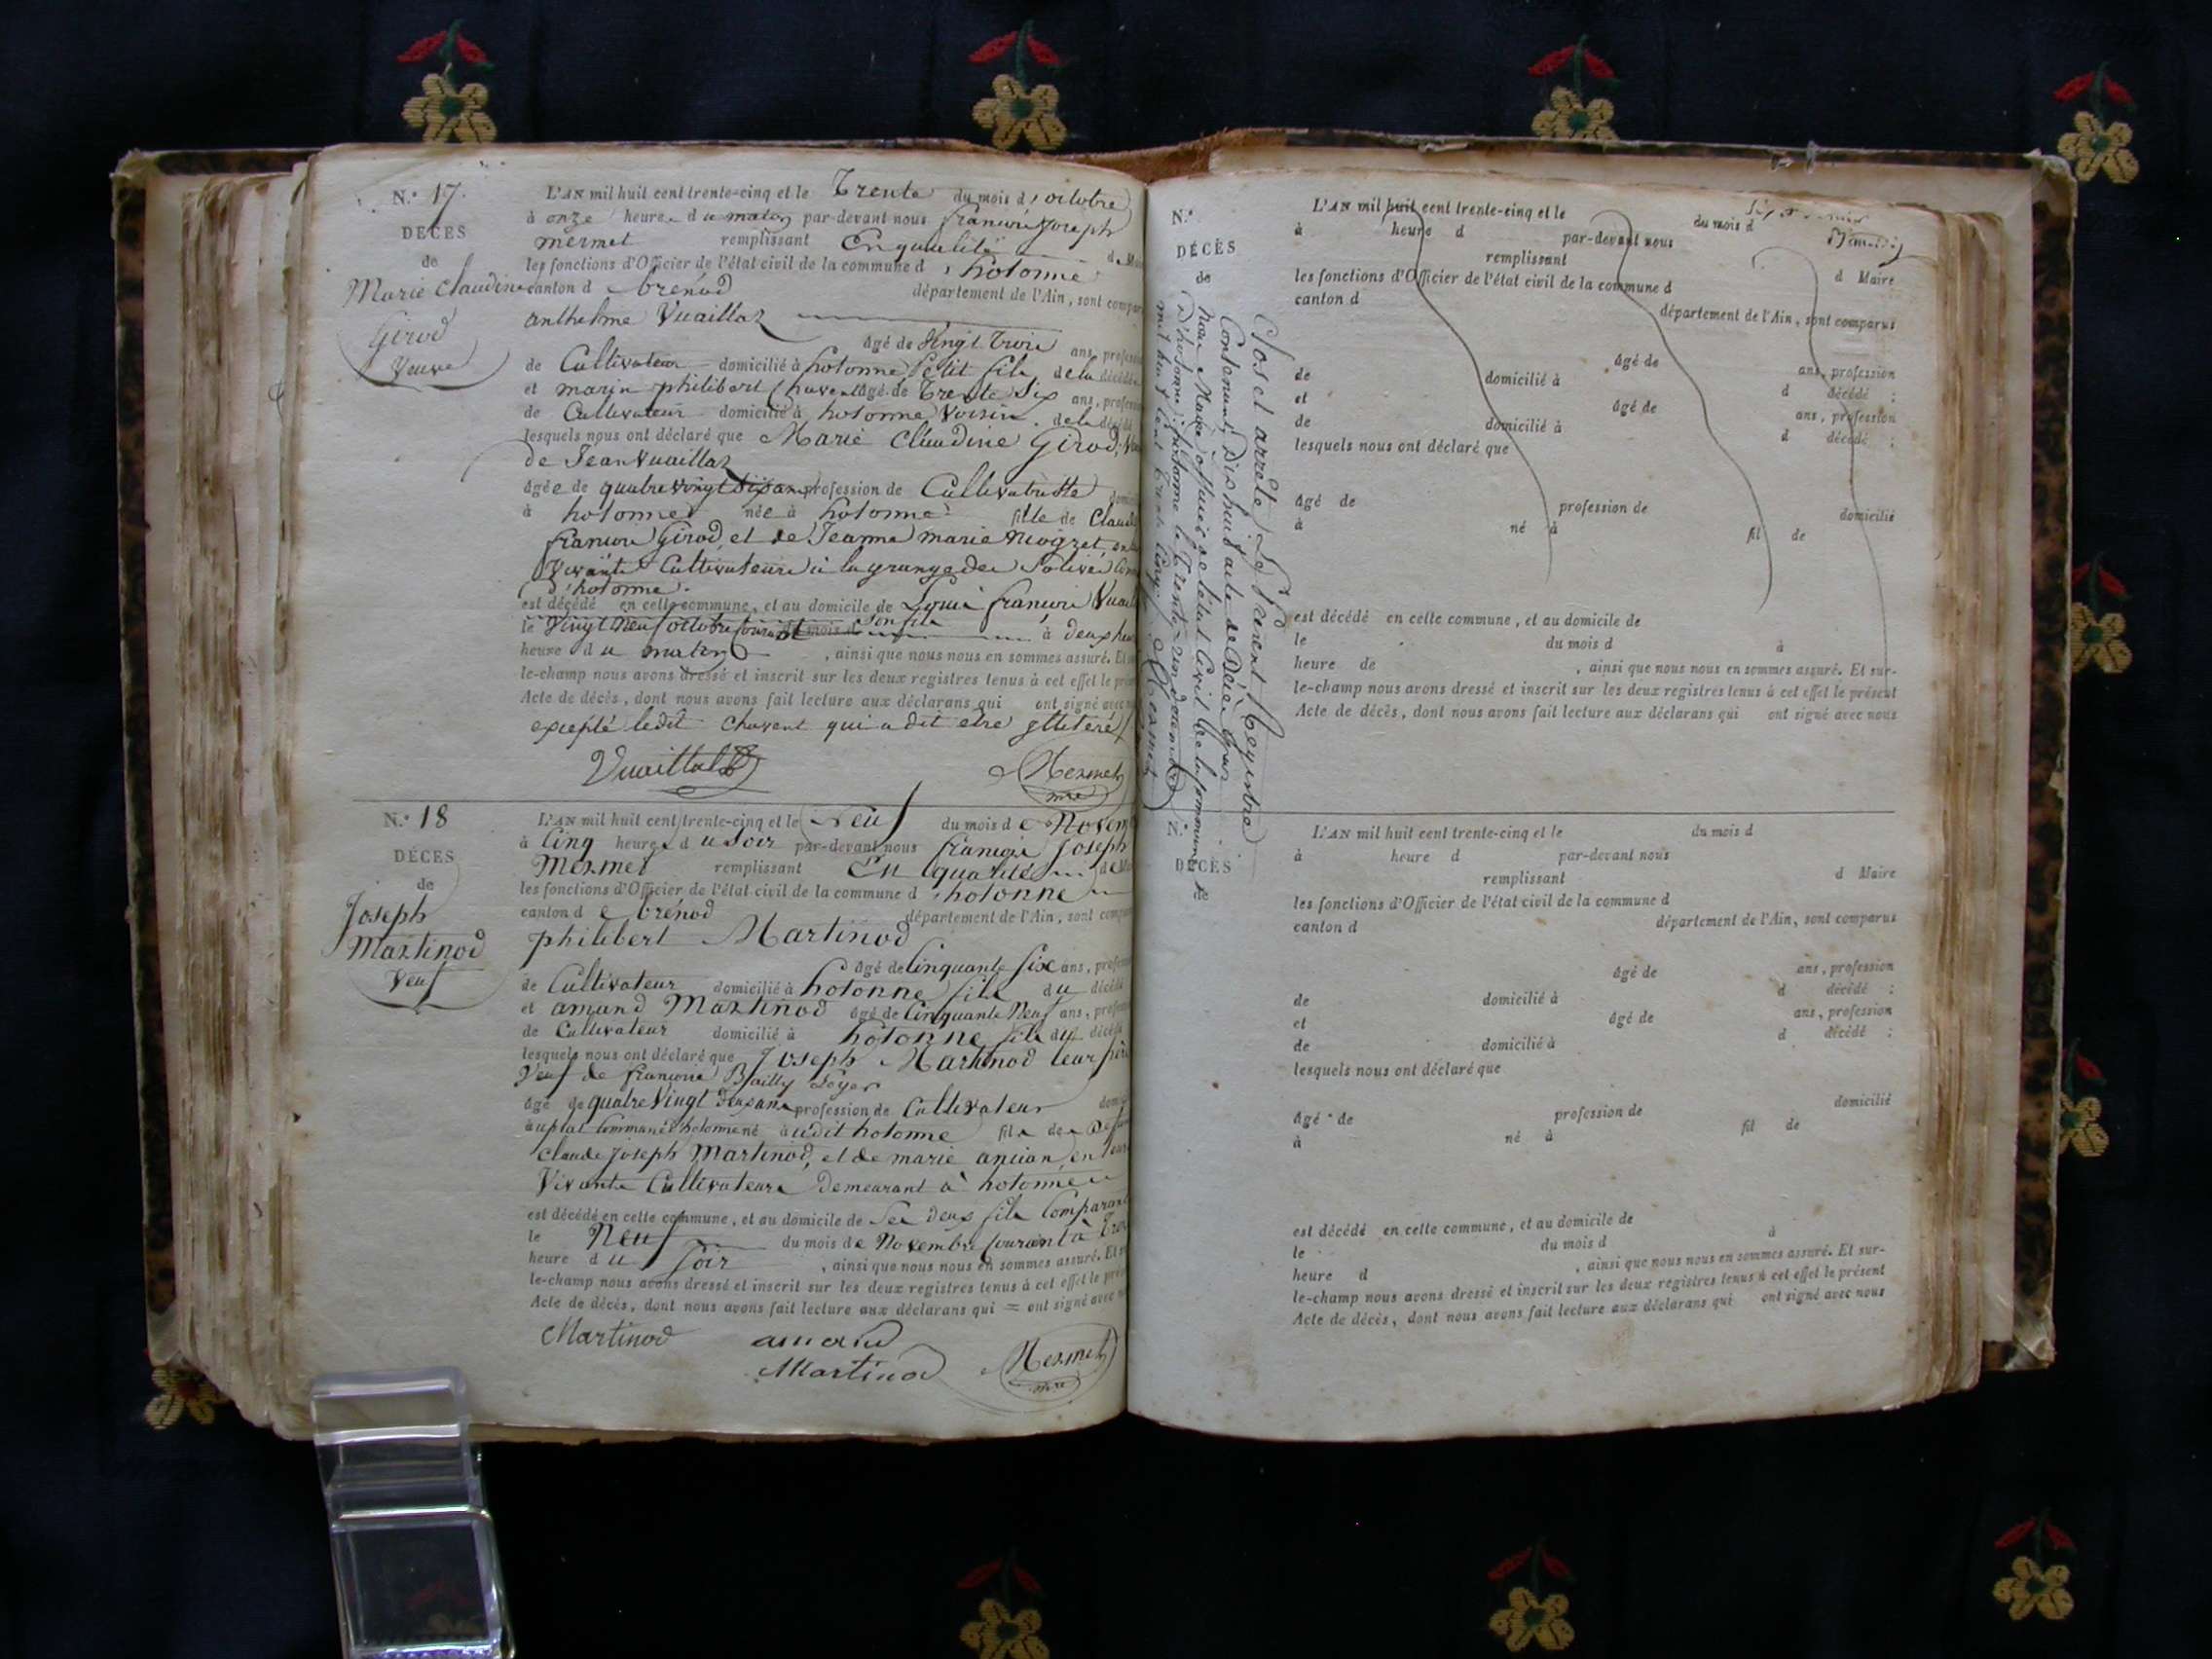 N.° 17.
DÉCÈS
de
Marie Claudine
Girod
Veuve
L'AN mil huit cent trente-cinq et le Trente du mois d'octobre
à onze heures du matin par-devant nous françois Joseph
mermet remplissant En qualité de Maire
les fonctions d'Officier de l'état civil de la commune d'hotonne
canton de brenod département de l'Ain, sont comparus
anthelme Vuaillat
âgé de Vingt Trois ans, profession
de Cultivateur domicilié à hotonne Petit fils de la décédée
et marin philibert Chavent âgé de Trente Six ans, profession
de Cultivateur domicilié à hotonne Voisin de la décédée
lesquels nous ont déclaré que Marie Claudine Girod, Veuve
de Jean Vuaillat
âgée de quatre vingt Six ans profession de Cultivatrice
à hotonne née à hotonne fille de Claude
françois Girod, et de Jeanne marie
Vivants Cultivateurs à la grange des
d'hotonne.
est décédé en cette commune, et au domicile de Louis françois Vuaillat
son fils
le Vingt neuf octobre courant du mois d à deux heures
heure du matin, ainsi que nous nous en sommes assuré. Et sur-
le-champ nous avons dressé et inscrit sur les deux registres tenus à cet effet le présent
Acte de décès, dont nous avons fait lecture aux déclarans qui ont signé avec nous
excepté ledit Chavent qui a dit etre illiteré
Vuaillat
Mermet
mre
N.° 18
DÉCÈS
de
Joseph
Martinod
Veuf
L'AN mil huit cent trente-cinq et le Neuf du mois de Novembre
à Cinq heures du Soir par-devant nous françois Joseph
Mermet remplissant En qualité de Maire
les fonctions d'Officier de l'état civil de la commune d'hotonne
canton de brénod département de l'Ain, sont comparus
philibert Martinod
âgé de Cinquante Six ans, profession
de Cultivateur domicilié à hotonne fils du décédé
et amand Martinod âgé de Cinquante Neuf ans, profession
de Cultivateur domicilié à hotonne fils du décédé
lesquels nous ont déclaré que Joseph Martinod leur père
Veuf de françoise Bailly
âgé de quatre Vingt Deux ans profession de Cultivateur
né à udit hotonne fils de
Claude Joseph Martinod, et de marie ancian, en leur
Vivants Cultivateurs demeurant à hotonne
est décédé en cette commune, et au domicile de Ses deux fils Comparants
le Neuf du mois de Novembre courant à Trois
heure du Soir, ainsi que nous nous en sommes assuré. Et sur-
le-champ nous avons dressé et inscrit sur les deux registres tenus à cet effet le présent
Acte de décès, dont nous avons fait lecture aux déclarans qui = ont signé avec nous
Martinod
amand
Martinod
Mermet
mre
N.°
DÉCÈS
de
Clos et arrêté Le Présent Registre
Contenant Dix huit acte de Décès par
Nous Maire officier de l'état Civil de la commune
D'hotonne, à hotonne le Trente un décembre
mil huit cent trente cinq. Mermet
L'AN mil huit cent trente-cinq et le du mois d
à heure d par-devant nous
remplissant d Maire
les fonctions d'Officier de l'état civil de la commune d
canton d département de l'Ain, sont comparus
âgé de ans, profession
de domicilié à d décédé ;
et âgé de ans, profession
de domicilié à d décédé ;
lesquels nous ont déclaré que
âgé de profession de domicilié
à né à fil de
est décédé en cette commune, et au domicile de
le du mois d à
heure de , ainsi que nous nous en sommes assuré. Et sur-
le-champ nous avons dressé et inscrit sur les deux registres tenus à cet effet le présent
Acte de décès, dont nous avons fait lecture aux déclarans qui ont signé avec nous
N.
DÉCÈS
de
L'AN mil huit cent trente-cinq et le du mois d
à heure d par-devant nous
remplissant d Maire
les fonctions d'Officier de l'état civil de la commune d
canton d département de l'Ain, sont comparus
âgé de ans, profession
de domicilié à d décédé ;
et âgé de ans, profession
de domicilié à d décédé ;
lesquels nous ont déclaré que
âgé de profession de domicilié
à né à fil de
est décédé en cette commune, et au domicile de
le du mois d à
heure d , ainsi que nous nous en sommes assuré. Et sur-
le-champ nous avons dressé et inscrit sur les deux registres tenus à cet effet le présent
Acte de décès, dont nous avons fait lecture aux déclarans qui ont signé avec nous